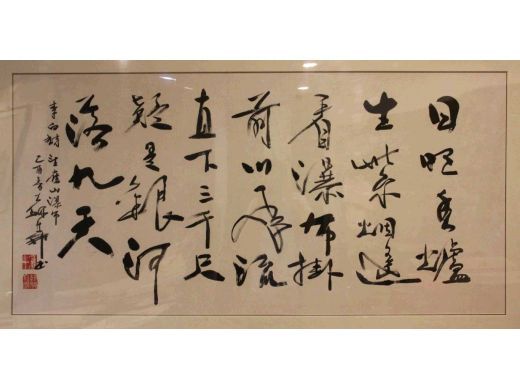 日照香爐
生紫烟遥
看瀑布掛
前川飛流
直下三千尺
疑是銀河
落九天
李白詩望廬山瀑布
乙酉 書